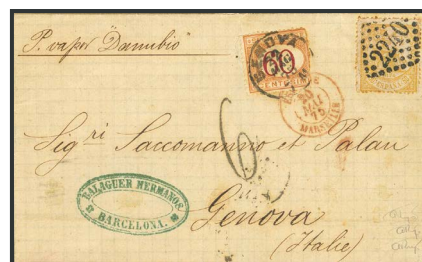 P. vapor "Danubio"
GENOVA
60
CENTESIMI
2240
MARSEILLE
6
Sig^ri Saccomanno et Palau
BALAGUER HERMANOS
BARCELONA.
Genova
(Italie)